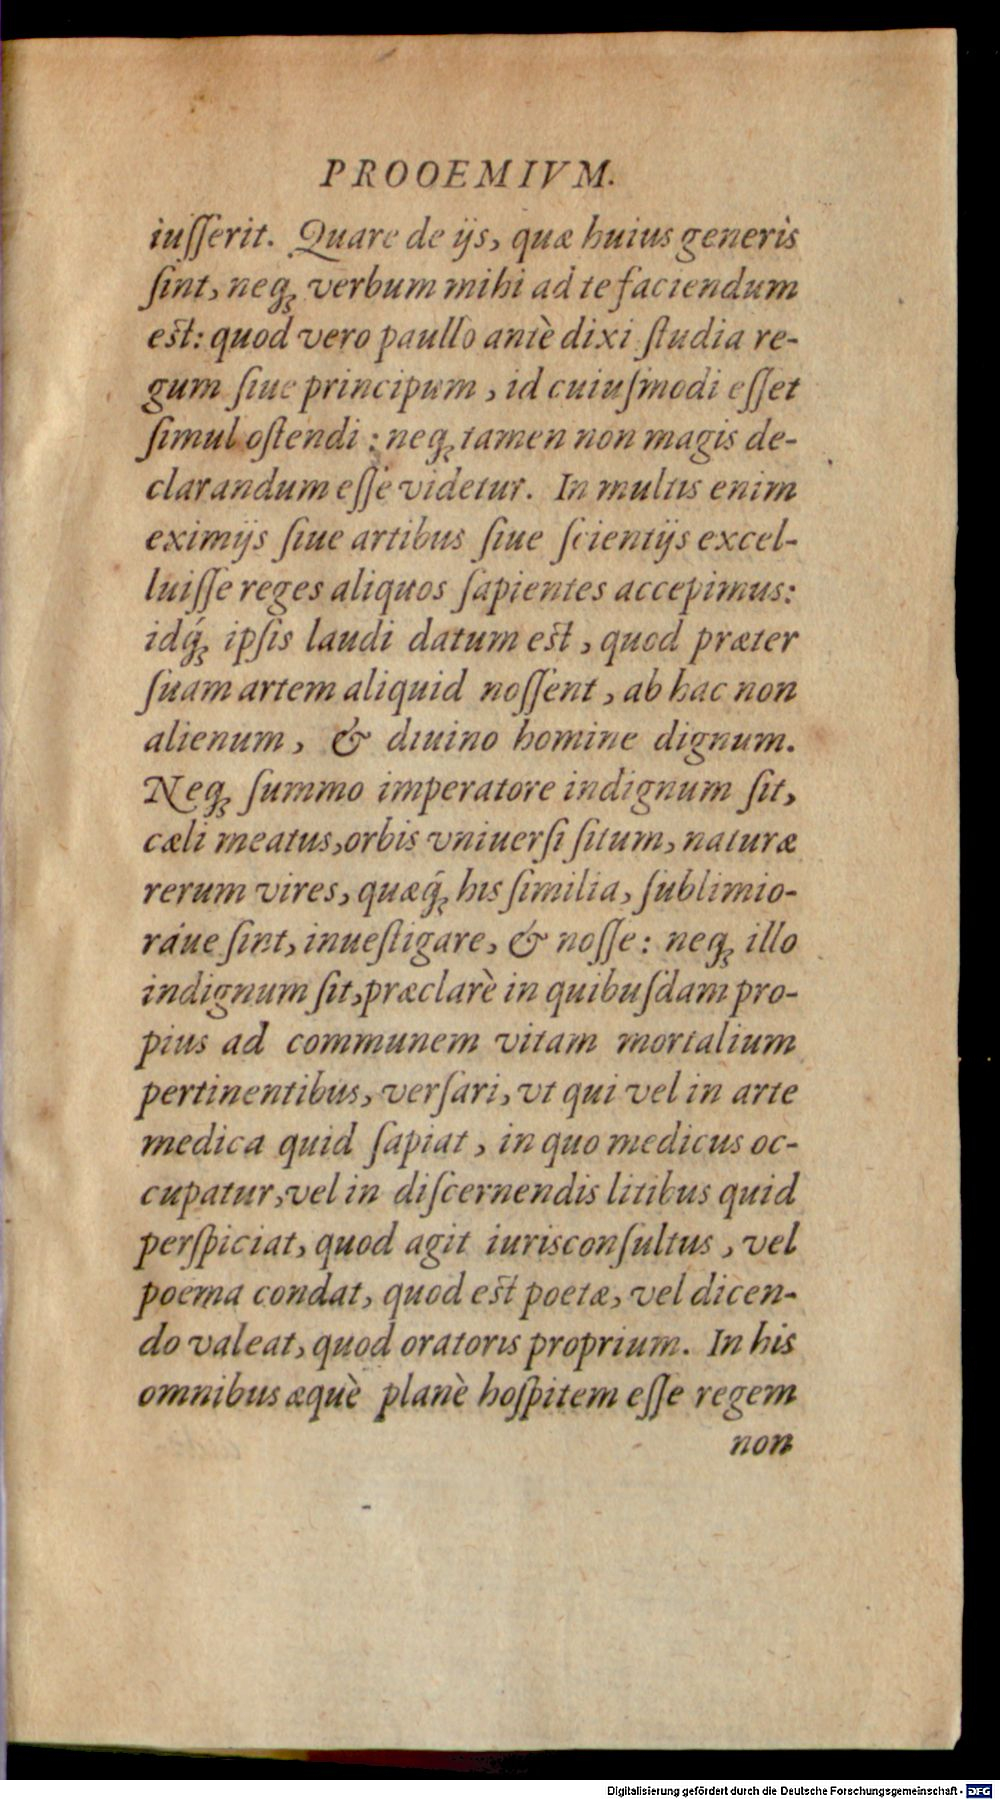 PROOEMIVM.
iuſſerit. Quare de ijs, quæ huius generis
ſint, neq; verbum mihi ad te faciendum
est: quod vero paullo antè dixi ſtudia re-
gum ſiue principum, id cuiuſmodi eſſet
ſimul oſtendi: neq; tamen non magis de-
clarandum eſſe videtur. In multis enim
eximijs ſiue artibus ſiue ſcientijs excel-
luiſſe reges aliquos ſapientes accepimus:
idq́; ipſis laudi datum est, quod præter
ſuam artem aliquid noſſent, ab hac non
alienum, & diuino homine dignum.
Neq; ſummo imperatore indignum ſit,
cæli meatus, orbis vniuerſi ſitum, naturæ
rerum vires, quæq́; his ſimilia, ſublimio-
ráue ſint, inueſtigare, & noſſe: neq; illo
indignum ſit, præclarè in quibuſdam pro-
pius ad communem vitam mortalium
pertinentibus, verſari, vt qui vel in arte
medica quid ſapiat, in quo medicus oc-
cupatur, vel in diſcernendis litibus quid
perſpiciat, quod agit iurisconſultus, vel
poema condat, quod est poetæ, vel dicen-
do valeat, quod oratoris proprium. In his
omnibus æquè planè hoſpitem eſſe regem
non
Digitalisierung gefördert durch die Deutsche Forschungsgemeinschaft - DFG